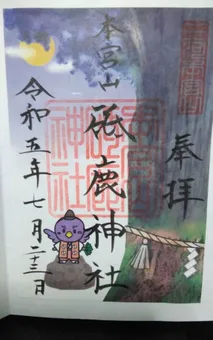 奉拝
本宮山
砥鹿神社
令和五年七月二十三日